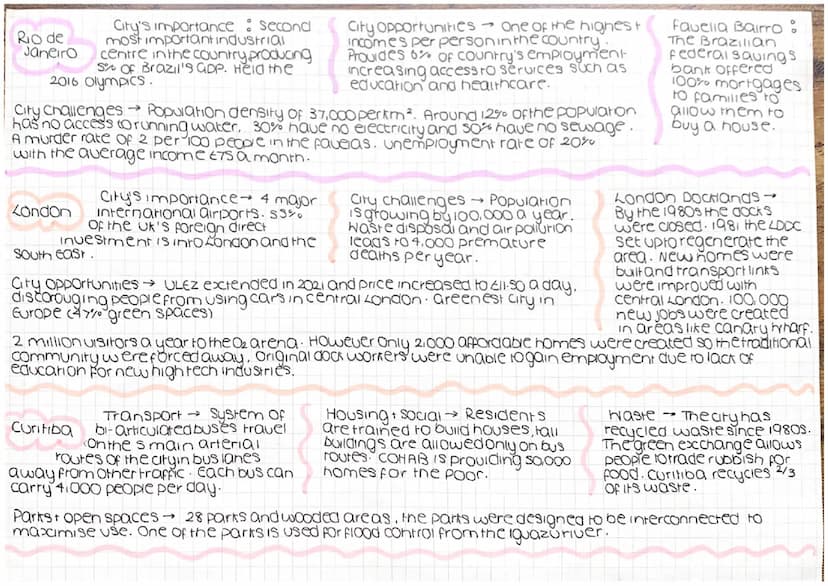 Rio de
Janeiro
City's importance : second
most important industrial
centre in the country producing
5% of Brazil's GDP. Held the
2016 Olympics.
City opportunities → One of the highest
incomes per person in the country.
Provides 6% of country's employment
increasing access to services such as
education and healthcare.
Favella Bairro :
The Brazilian
federal savings
bank offered
100% mortgages
to families to
allow them to
buy a house.
City challenges → Population density of 37,000 per km². Around 12% of the population
has no access to running water, 30% have no electricity and 50% have no sewage.
A murder rate of 2 per 100 people in the favelas. Unemployment rate of 20%
with the average income £75 a month.
London
City's importance → 4 major
international airports. 53%
of the UK's foreign direct
investment is into London and the
South east.
City challenges → Population
is growing by 100,000 a year.
Waste disposal and air pollution
leads to 4,000 premature
deaths per year.
London Docklands →
By the 1980s the docks
were closed. 1981 the LDDC
set up to regenerate the
area. New homes were
built and transport links
were improved with
central London. 100,000
new jobs were created
in areas like canary wharf.
City opportunities → ULEZ extended in 2021 and price increased to £11.50 a day,
discorouging people from using cars in central London. Greenest city in
Europe (47% green spaces)
2 million visitors a year to the O2 arena. However only 2,000 affordable homes were created so the traditional
community were forced away. Original dock workers were unable to gain employment due to lack of
education for new high tech industries.
Curitiba
Transport → System of
bi-articulated buses travel
on the 5 main arterial
routes of the city in bus lanes
away from other traffic. Each bus can
carry 4,000 people per day.
Housing + social → Residents
are trained to build houses, tall
buildings are allowed only on bus
routes. COHAB is providing 50,000
homes for the poor.
Waste → The city has
recycled waste since 1980s.
The green exchange allows
people to trade rubbish for
food. Curitiba recycles 2/3
of its waste.
Parks + open spaces → 28 parks and wooded areas, the parks were designed to be interconnected to
maximise use. One of the parks is used for flood control from the Iguazu river.